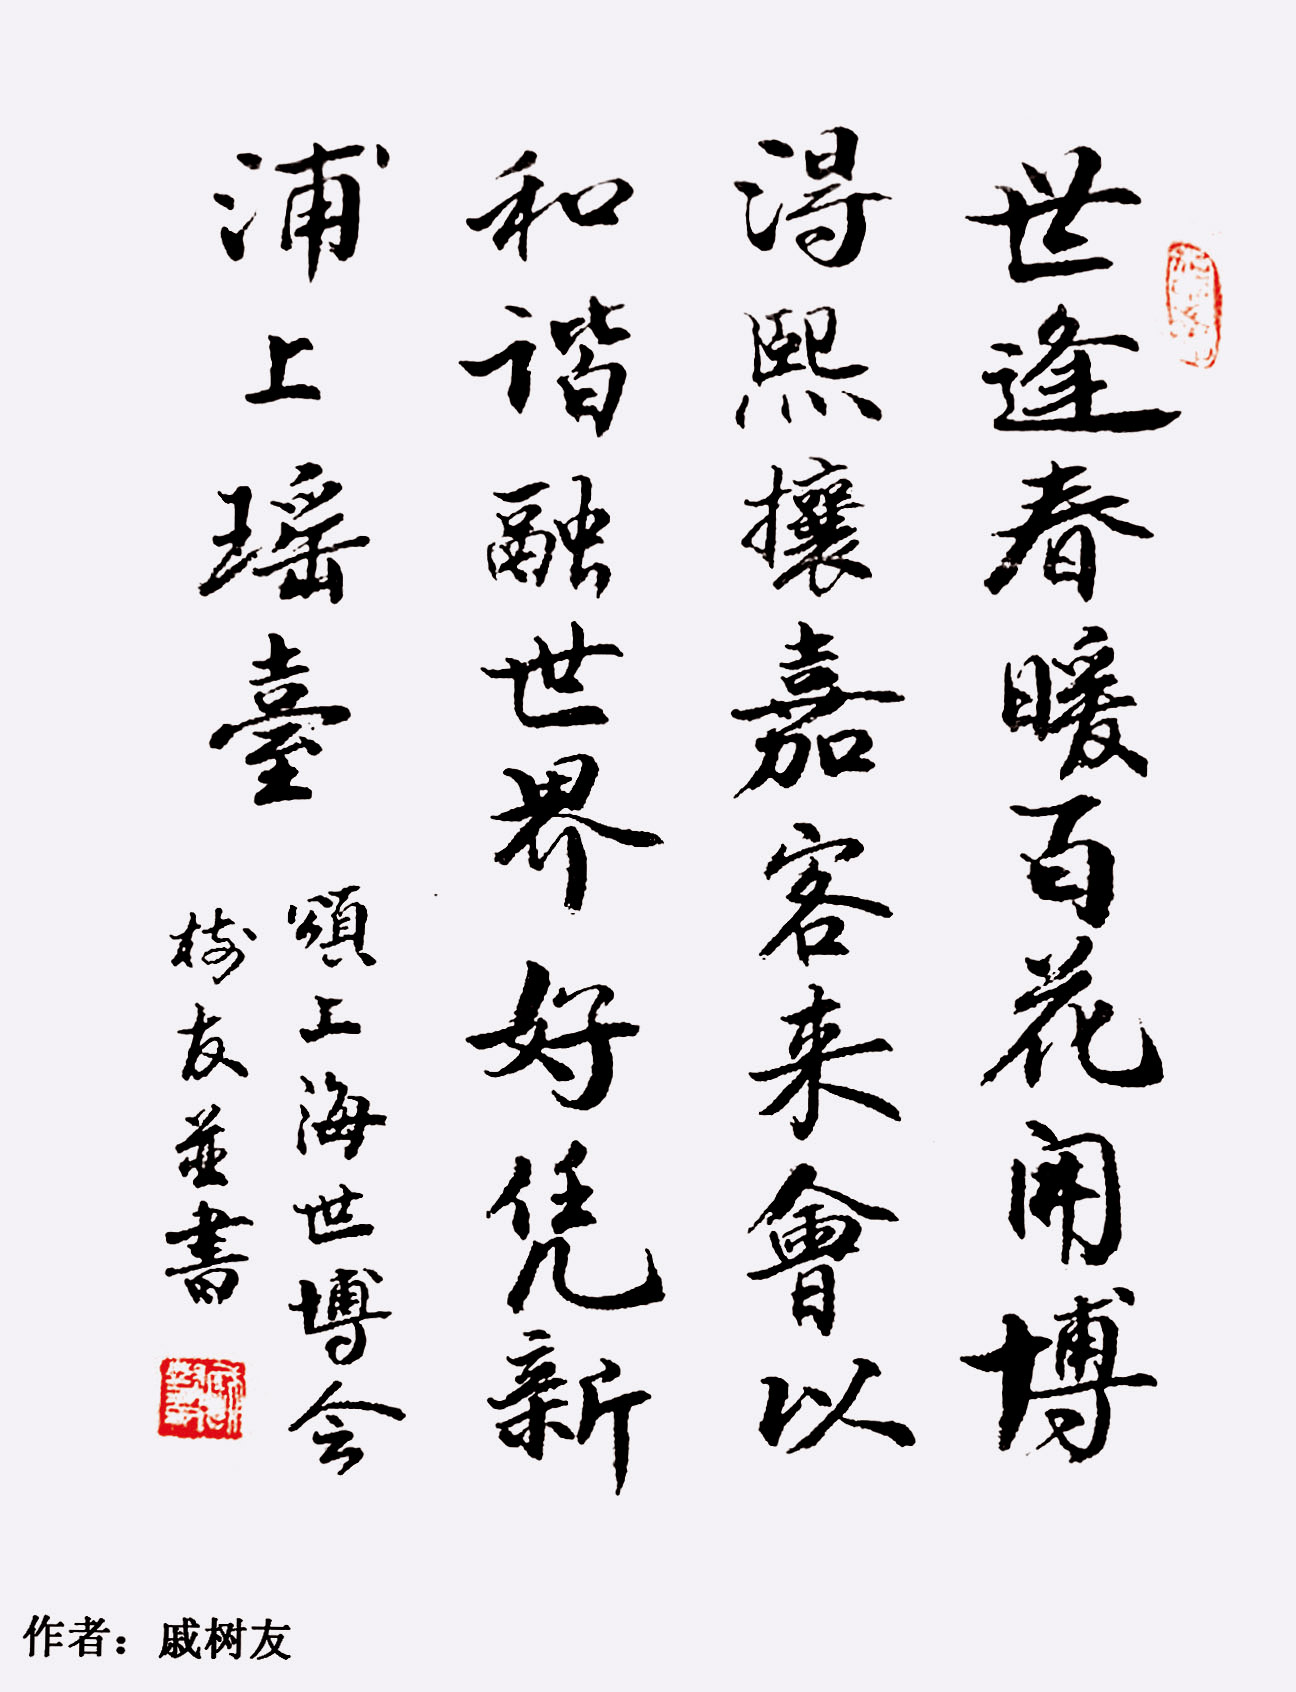 世逢春暖百花開博
得熙攘嘉客来會以
和谐融世界好凭新
浦上瑶臺
頌上海世博会
樹友並書
作者：戚树友